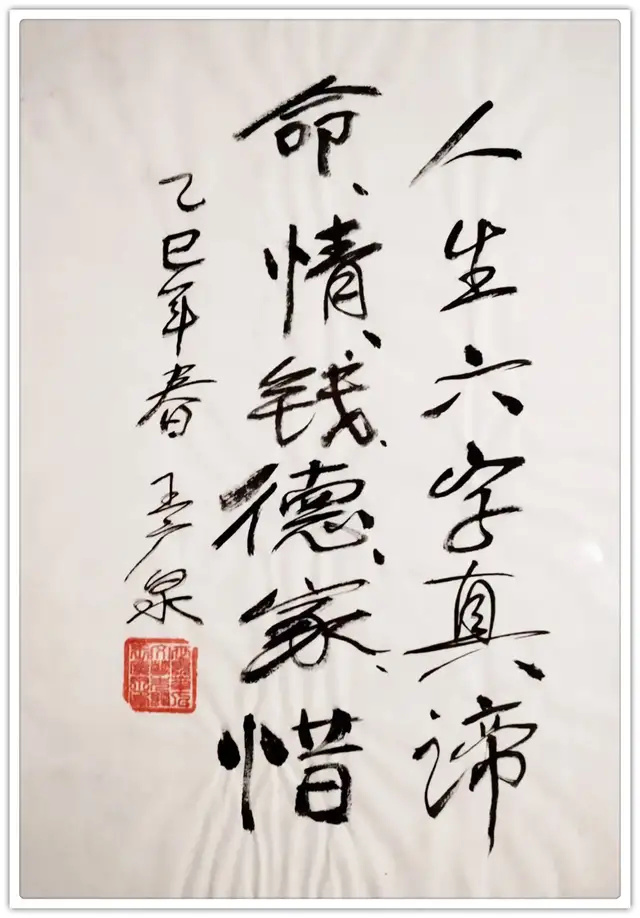 人生六字真谛
命、情、钱、德、家、惜
乙巳年春 王广泉